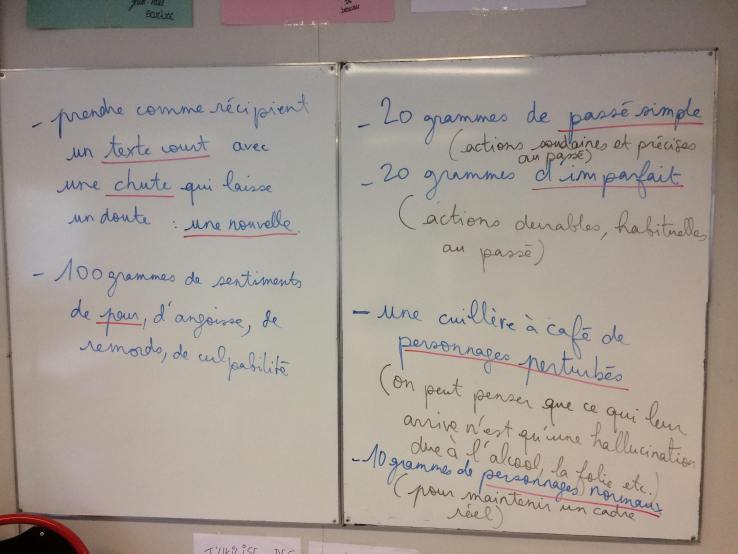 - prendre comme récipient
un texte court avec
une chute qui laisse
un doute : une nouvelle.
- 100 grammes de sentiments
de peur, d'angoisse, de
remords, de culpabilité
- 20 grammes de passé simple
(actions soudaines et précises
au passé)
- 20 grammes d'imparfait
(actions durables, habituelles
au passé)
- une cuillère à café de
personnages perturbés
(on peut penser que ce qui leur
arrive n'est qu'une hallucination
due à l'alcool, la folie etc.)
- 10 grammes de personnages normaux
(pour maintenir un cadre
réel)